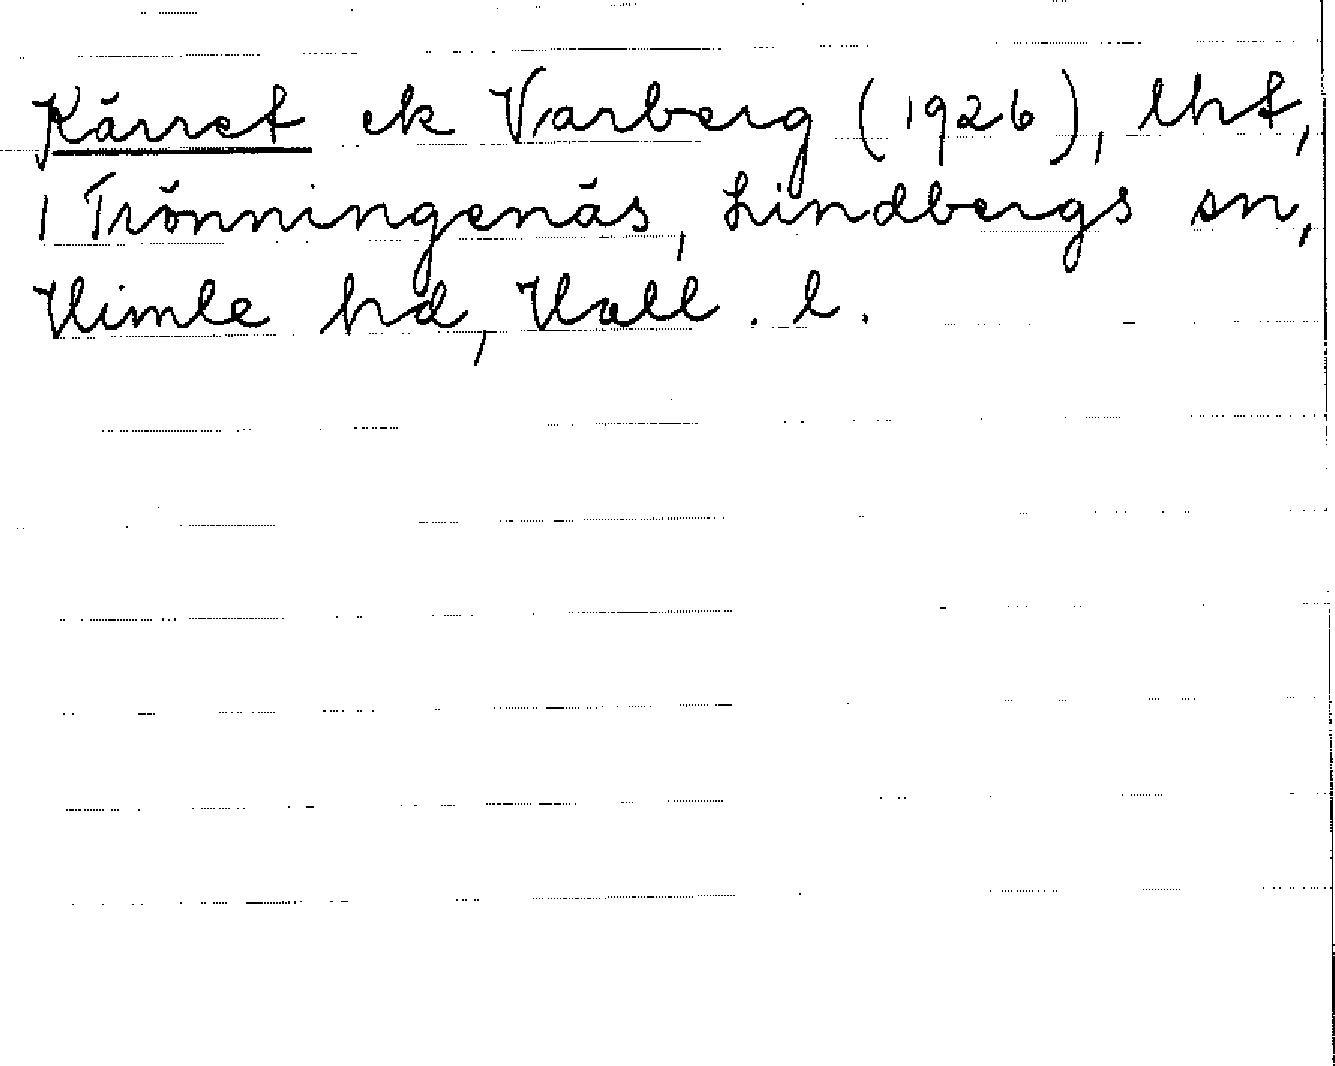 Kärret ek Varberg (1926), lht,
1 Trönningenäs, Lindbergs sn,
Himle hd, Hall. l.